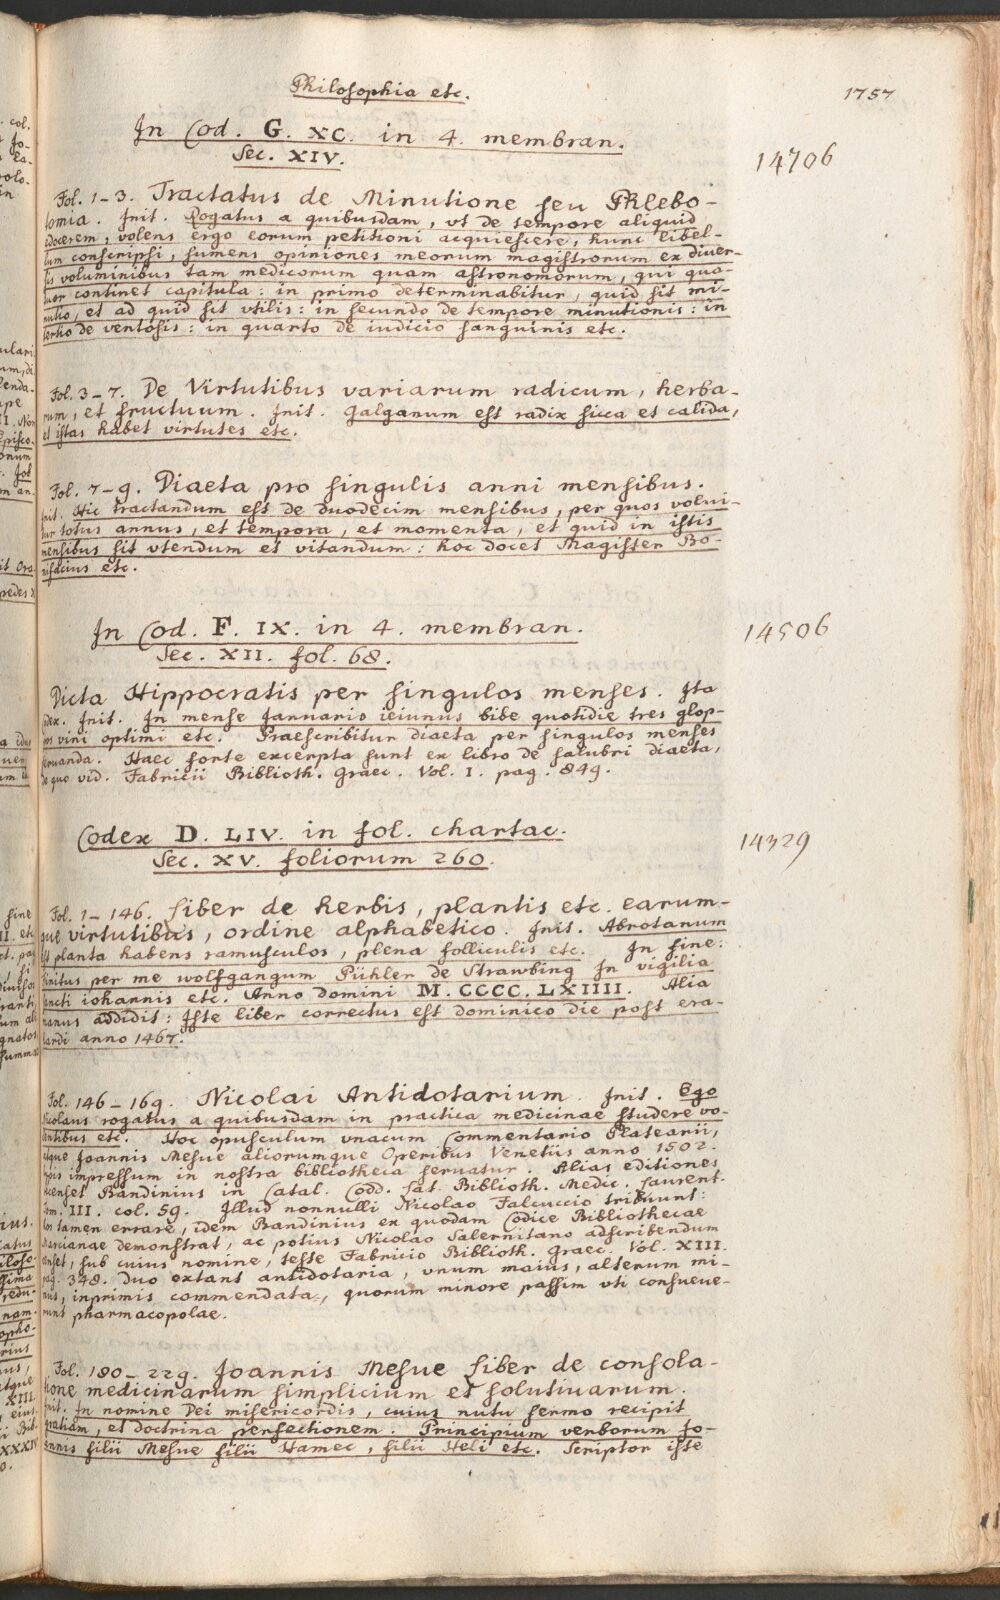 Philosophia etc.
1757
In Cod. G. XC. in 4. membran.
Sec. XIV.
14706
Fol. 1-3. Tractatus de Minutione seu Phlebo-
tomia. Init. Rogatus a quibusdam, vt de tempore aliquid
edocerem, volens ergo eorum petitioni acquiescere, hunc libel-
lum conscripsi, sumens opiniones meorum magistrorum ex diver-
sis voluminibus tam medicorum quam astronomorum, qui qua-
tuor continet capitula: in primo determinabitur, quid sit mi-
nutio, et ad quid sit vtilis: in secundo de tempore minutionis: in
tertio de ventosis: in quarto de iudicio sanguinis etc.
Fol. 3-7. De Virtutibus variarum radicum, herba-
rum, et fructuum. Init. Galganum est radix sicca et calida,
et istas habet virtutes etc.
Fol. 7-9. Diaeta pro singulis anni mensibus.
Init. Hic tractandum est de duodecim mensibus, per quos volui-
tur totus annus, et tempora, et momenta, et quid in istis
mensibus sit vtendum et vitandum: hoc docet Magister Bo-
nifacius etc.
In Cod. F. IX. in 4. membran.
Sec. XII. fol. 68.
14506
Dicta Hippocratis per singulos menses. Ita
codex. Init. In mense Januario ieiunus bibe quotidie tres glop-
pos vini optimi etc. Praescribitur diaeta per singulos menses
seruanda. Haec forte excerpta sunt ex libro de salubri diaeta,
de quo vid. Fabricii Biblioth. Graec. Vol. I. pag. 849.
Codex D. LIV. in fol. chartac.
Sec. XV. foliorum 260.
14329
Fol. 1-146. Liber de herbis, plantis etc. earum-
que virtutibus, ordine alphabetico. Init. Abrotanum
est planta habens ramusculos, plena folliculis etc. In fine:
Finitus per me wolfgangum Pühler de Strawbing In vigilia
sancti iohannis etc. Anno domini M. CCCC. LXIIII. Alia
manus addidit: Iste liber correctus est dominico die post era-
sardi anno 1467.
Fol. 146-169. Nicolai Antidotarium. Init. Ego
Nicolaus rogatus a quibusdam in practica medicinae studere vo-
lentibus etc. Hoc opusculum vnacum Commentario Platearii,
atque Joannis Mesue aliorumque Operibus Venetiis anno 1502.
typis impressum in nostra bibliotheca seruatur. Alias editiones
recenset Bandinius in Catal. Codd. Lat. Biblioth. Medic. Laurent.
Tom. III. col. 59. Illud nonnulli Nicolao Falcuccio tribuunt:
hos tamen errare, idem Bandinius ex quodam Codice Bibliothecae
Marcianae demonstrat, ac potius Nicolao Salernitano adscribendum
censet, sub cuius nomine, teste Fabricio Biblioth. Graec. Vol. XIII.
pag. 348. duo extant antidotaria, vnum maius, alterum mi-
nus, inprimis commendata, quorum minore passim vti consueue-
runt pharmacopolae.
Fol. 180-229. Joannis Mesue Liber de consola-
tione medicinarum simplicium et solutiuarum.
Init. In nomine Dei misericordis, cuius nutu sermo recipit
gratiam, et doctrina perfectionem. Principium verborum Jo-
annis filii Mesue filii Hamec, filii Heli etc. Scriptor iste